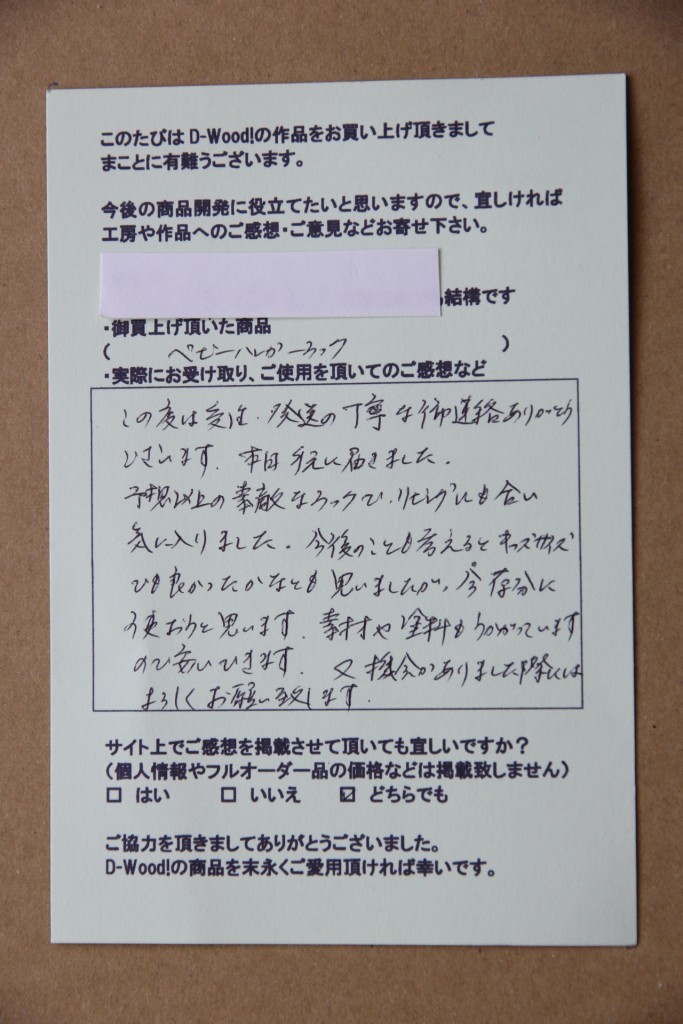 このたびは D-Wood!の作品をお買い上げ頂きまして
まことに有難うございます。
今後の商品開発に役立てたいと思いますので、宜しければ
工房や作品へのご感想・ご意見などお寄せ下さい。
結構です
・御買上げ頂いた商品
( ベビーハンガーラック )
・実際にお受け取り、ご使用を頂いてのご感想など
この度は受注・発送の丁寧な御連絡ありがとう
ございます。本日手元に届きました。
予想以上の素敵なラックで、リビングにも合い
気に入りました。今後のことも考えるとキッズサイズ
でも良かったかなとも思いましたが、今存分に
使おうと思います。素材や塗料もうかがっています
ので安心できます。又機会がありました際には
よろしくお願い致します。
サイト上でご感想を掲載させて頂いても宜しいですか？
（個人情報やフルオーダー品の価格などは掲載致しません）
□ はい □ いいえ ☑ どちらでも
ご協力を頂きましてありがとうございました。
D-Wood!の商品を末永くご愛用頂ければ幸いです。